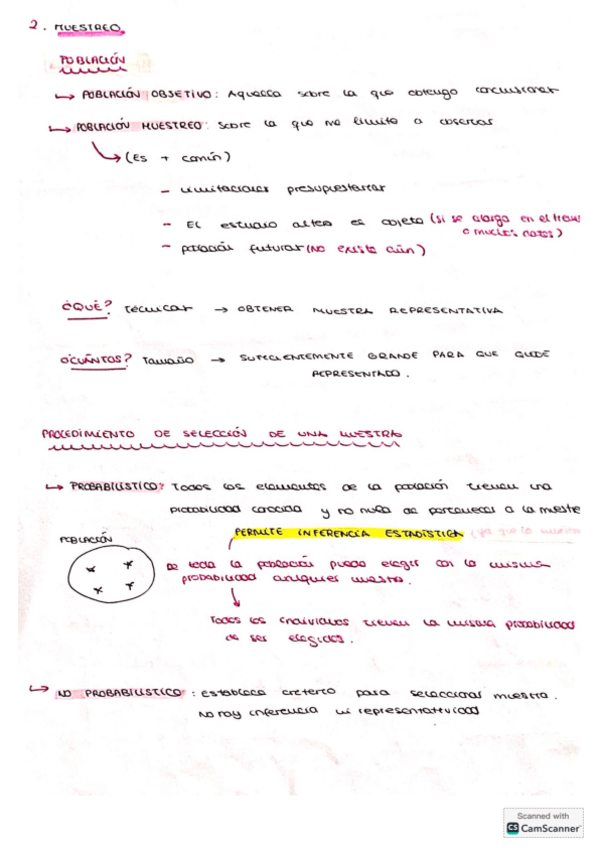 2. MUESTREO
POBLACIÓN
↳ POBLACIÓN OBJETIVO: Aquella sobre la que obtengo conclusiones
↳ POBLACIÓN MUESTREO: sobre la que me limito a observar
(Es + común)
- Limitaciones presupuestarias
- El estudio altera el objeto (si se alarga en el
- población futura (NO existe aún)
¿QUÉ? Técnicas → OBTENER MUESTRA REPRESENTATIVA
¿CUÁNTOS? Tamaño → SUFICIENTEMENTE GRANDE PARA QUE QUEDE
REPRESENTADO.
PROCEDIMIENTO DE SELECCIÓN DE UNA MUESTRA
↳ PROBABILISTICO: Todos los elementos de la población tienen una
probabilidad conocida y no nula de pertenecer a la muestra
PERMITE INFERENCIA ESTADÍSTICA (ya que la
POBLACIÓN
De toda la población puedo elegir con la misma
probabilidad cualquier muestra.
Todos los individuos tienen la misma probabilidad
de ser elegidos.
↳ NO PROBABILISTICO: establece criterio para seleccionar muestra.
No hay inferencia ni representatividad
Scanned with
CS CamScanner